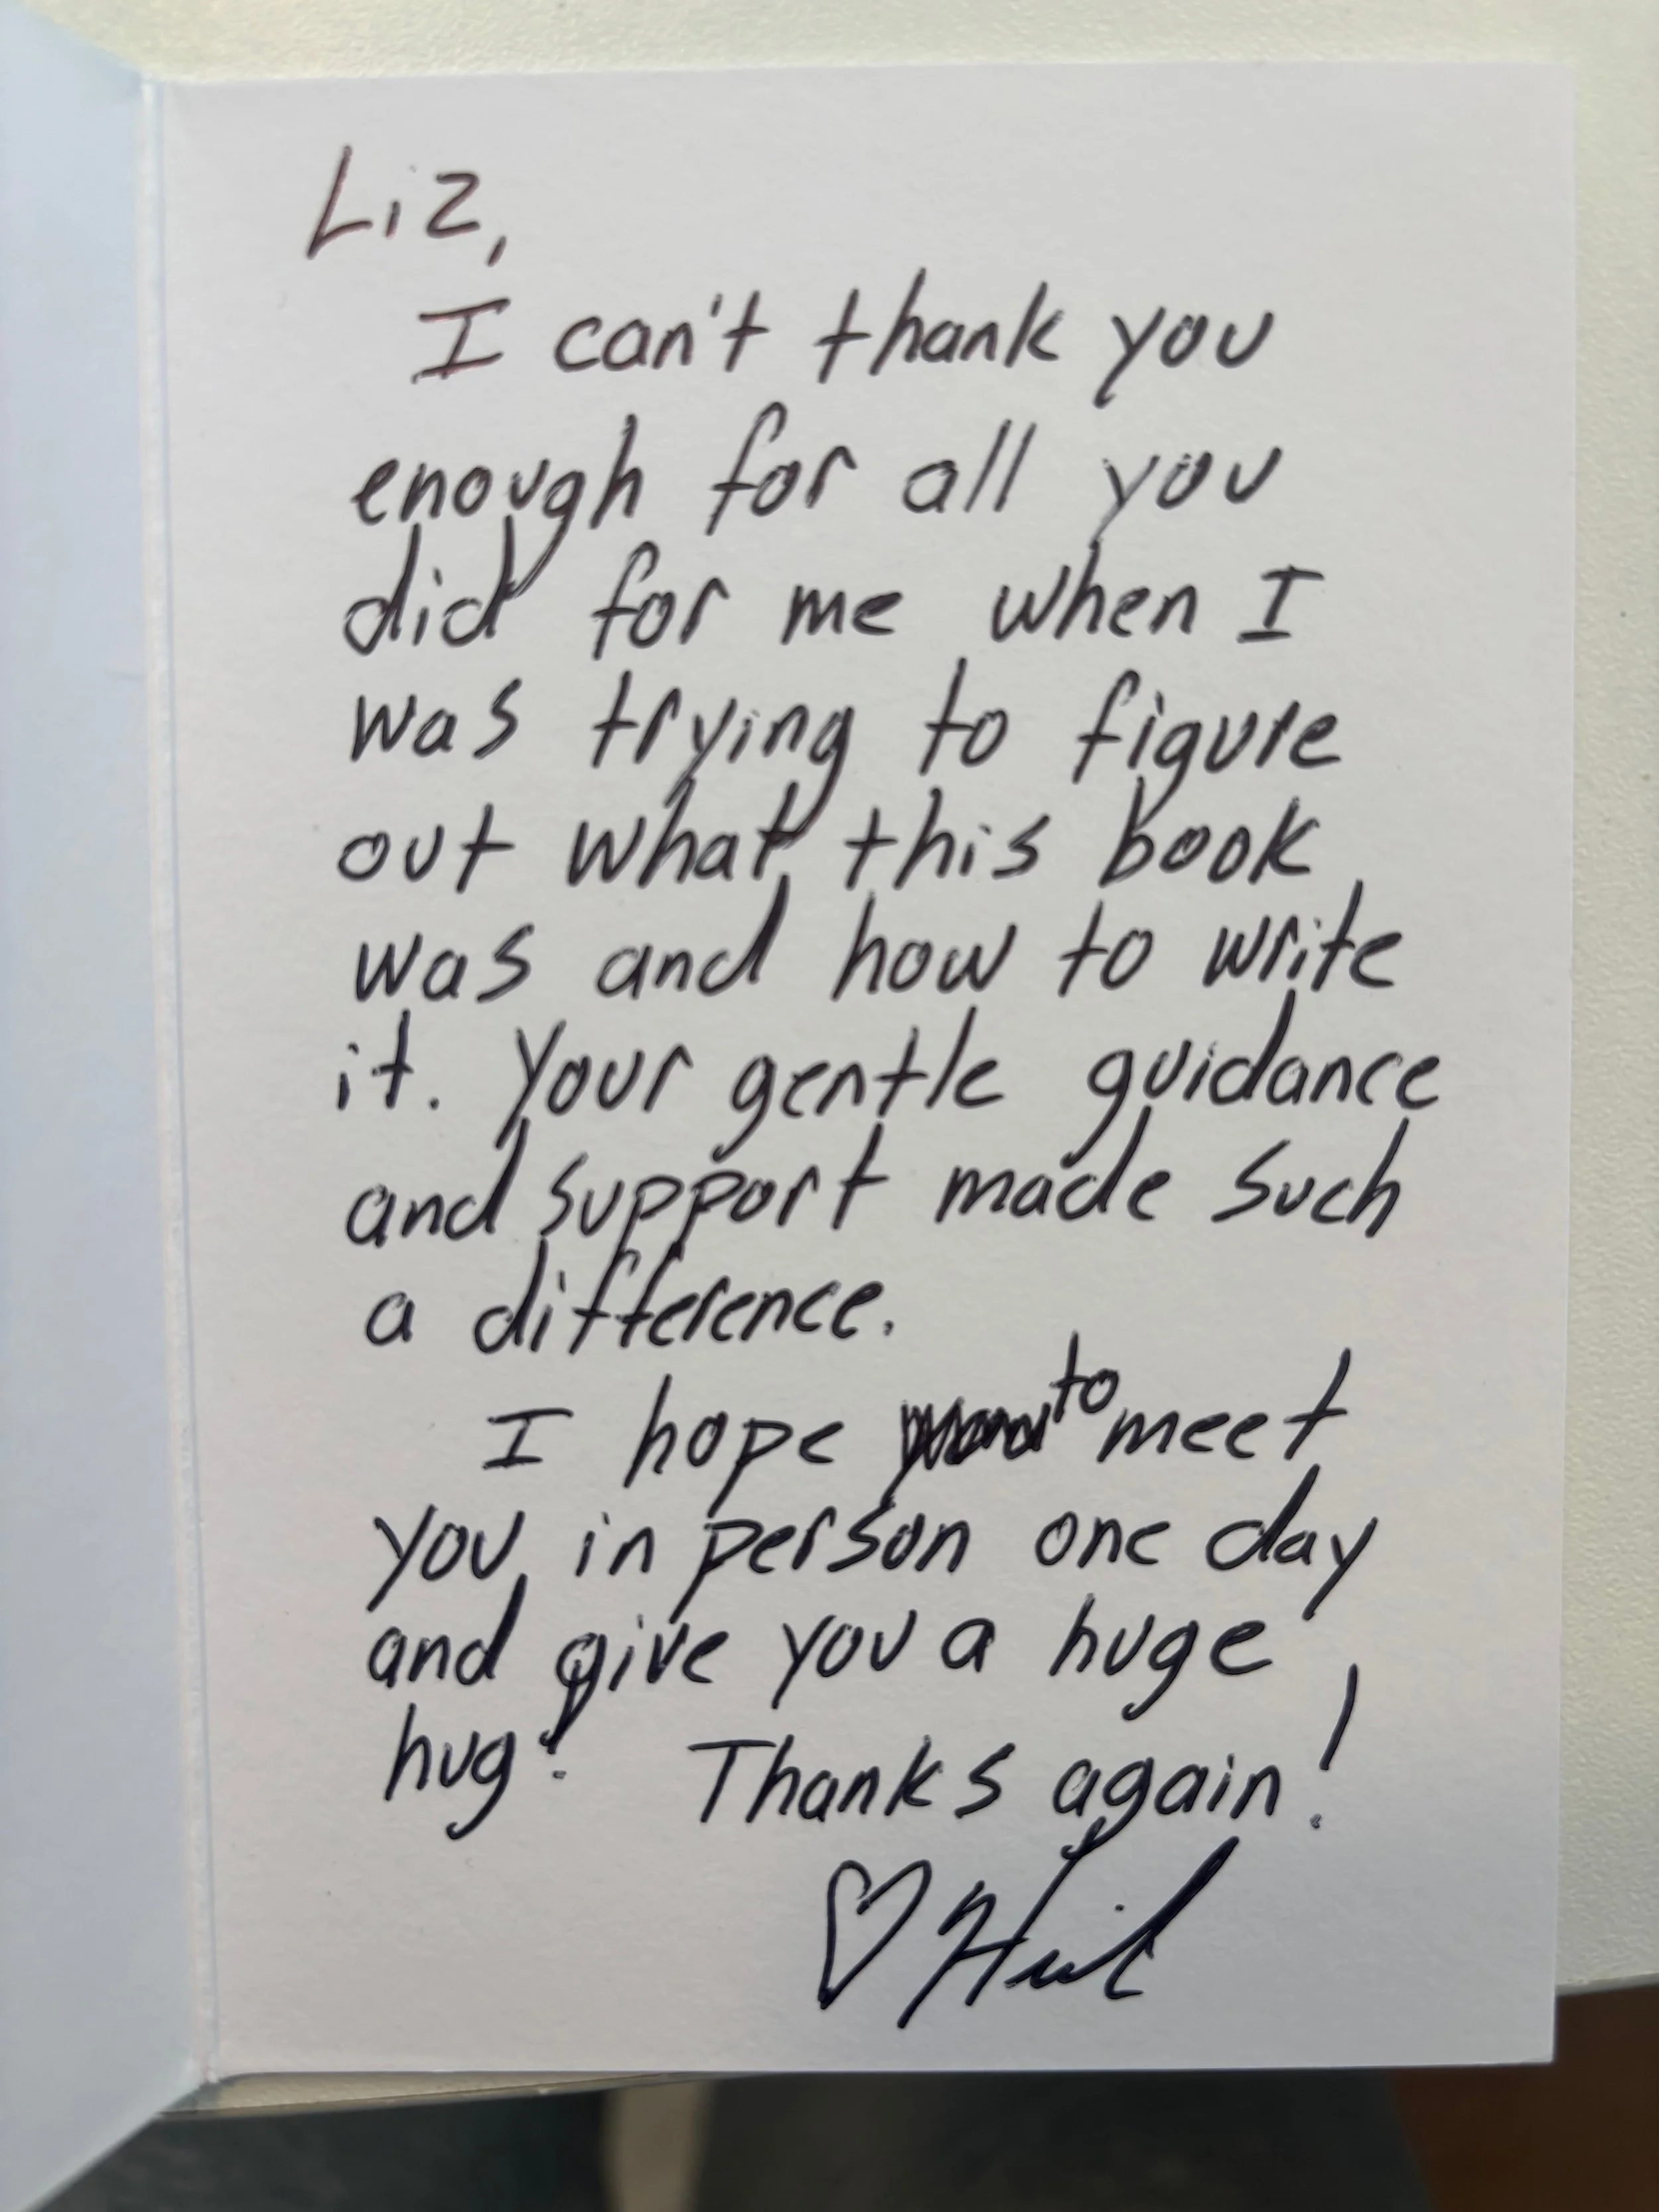 Liz,
I can't thank you
enough for all you
did for me when I
was trying to figure
out what this book
was and how to write
it. Your gentle guidance
and support made such
a difference.
I hope to meet
you in person one day
and give you a huge
hug! Thanks again!
♡